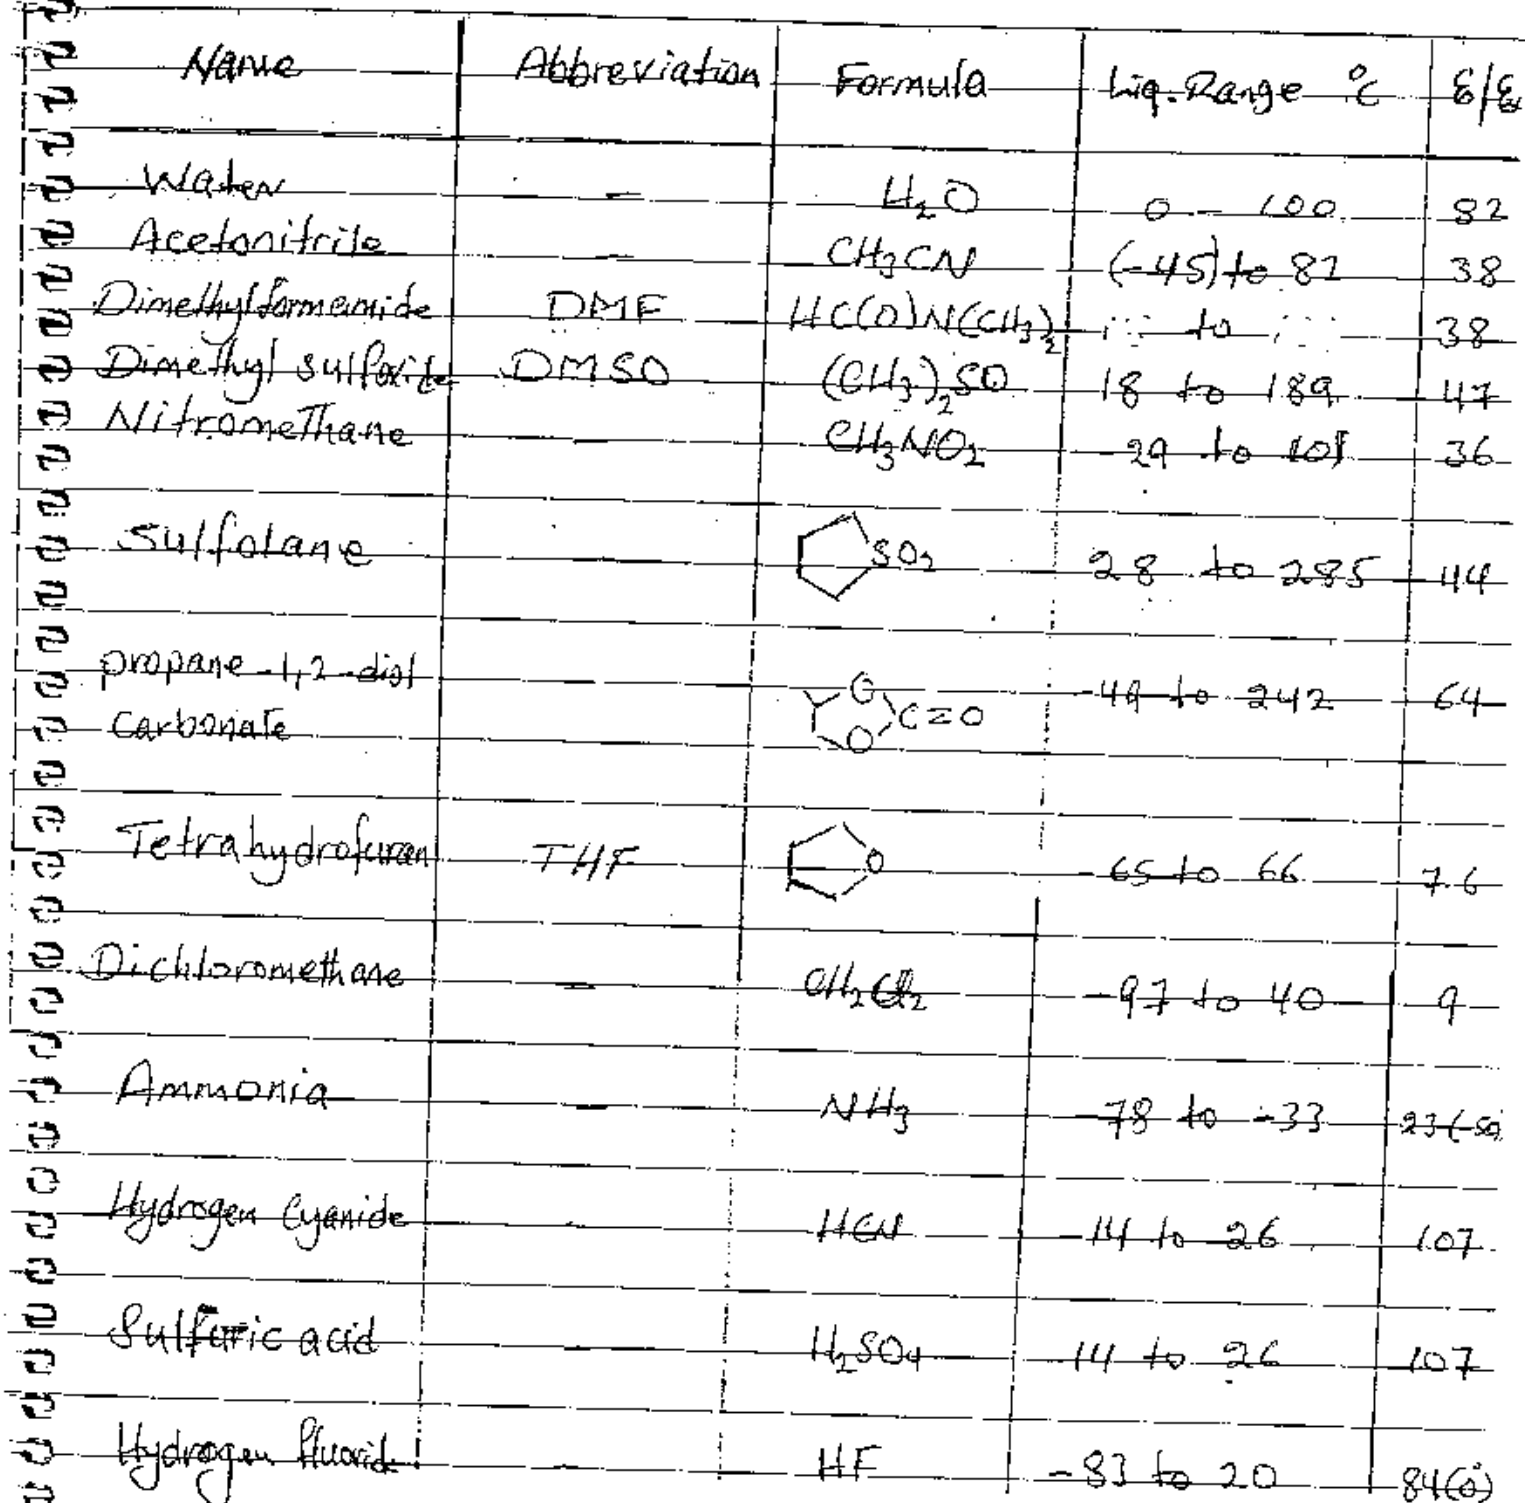 Name Abbreviation Formula Liq. Range °C ε/ε₀
Water - H₂O 0 - 100 82
Acetonitrile - CH₃CN (-45) to 82 38
Dimethylformamide DMF HC(O)N(CH₃)₂ to 38
Dimethyl sulfoxite DMSO (CH₃)₂SO 18 to 189 47
Nitromethane CH₃NO₂ -29 to 101 36
Sulfolane SO₂ 28 to 285 44
propane-1,2-diol O C=O O -49 to 242 64
Carbonate
Tetrahydrofuran THF O -65 to 66 7.6
Dichloromethane - CH₂Cl₂ -97 to 40 9
Ammonia - NH₃ -78 to -33 23(-50
Hydrogen Cyanide - HCN -14 to 26 107
Sulfuric acid H₂SO₄ 14 to 26 107
Hydrogen fluorid - HF -83 to 20 84(0)